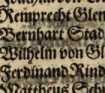 Reinprecht Glein
Bernhart Stad
Wilhelm von Gl
Ferdinand Rind
Mattheus Sch